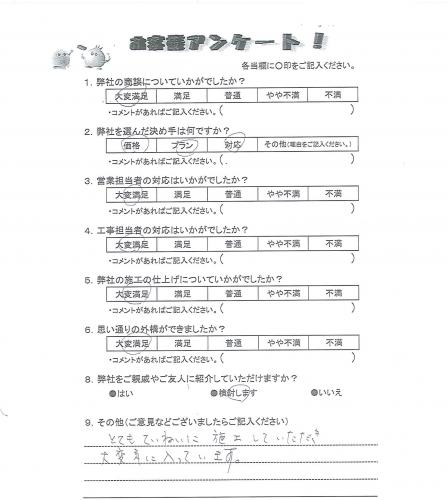 お客様アンケート!
各当欄に〇印をご記入ください。
1. 弊社の商談についていかがでしたか?
大変満足 満足 普通 やや不満 不満
・コメントがあればご記入ください。( )
2. 弊社を選んだ決め手は何ですか?
価格 プラン 対応 その他(理由をご記入ください。)
・コメントがあればご記入ください。( )
3. 営業担当者の対応はいかがでしたか?
大変満足 満足 普通 やや不満 不満
・コメントがあればご記入ください。( )
4. 工事担当者の対応はいかがでしたか?
大変満足 満足 普通 やや不満 不満
・コメントがあればご記入ください。( )
5. 弊社の施工の仕上げについていかがでしたか?
大変満足 満足 普通 やや不満 不満
・コメントがあればご記入ください。( )
6. 思い通りの外構ができましたか?
大変満足 満足 普通 やや不満 不満
・コメントがあればご記入ください。( )
8. 弊社をご親戚やご友人に紹介していただけますか?
●はい ●検討します ●いいえ
9. その他(ご意見などございましたらご記入ください)
とてもていねいに 施工していただき
大変気に入っています。